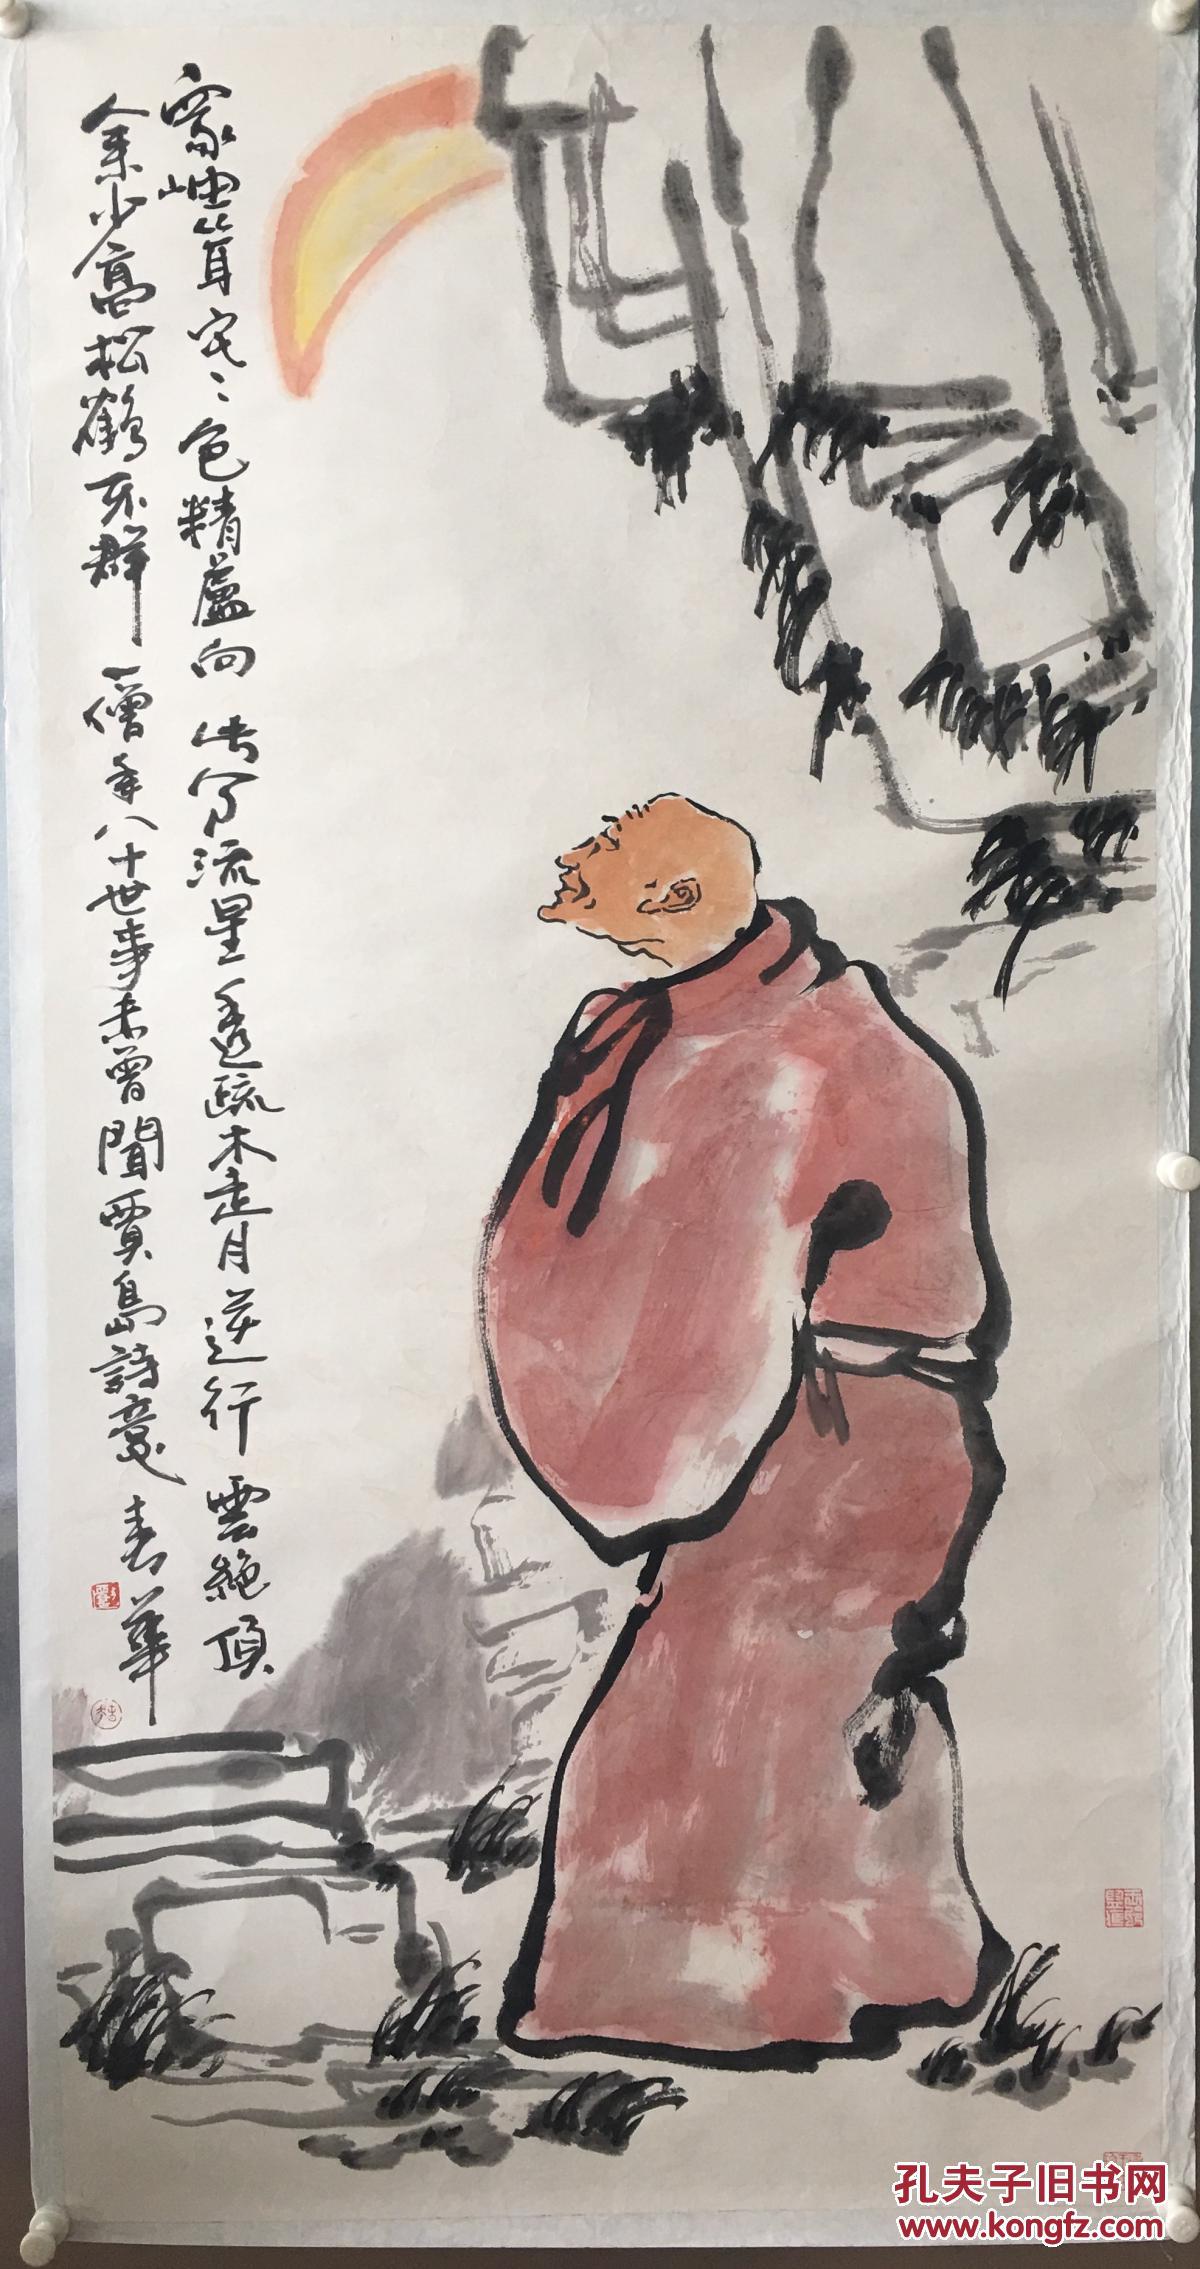 眾岫耸寒色精廬向此分流星透疏木走月逆行雲絶頂
人来少高松鶴不群一僧年八十世事未曾聞賈島詩意 春華
孔夫子旧书网
www.kongfz.com